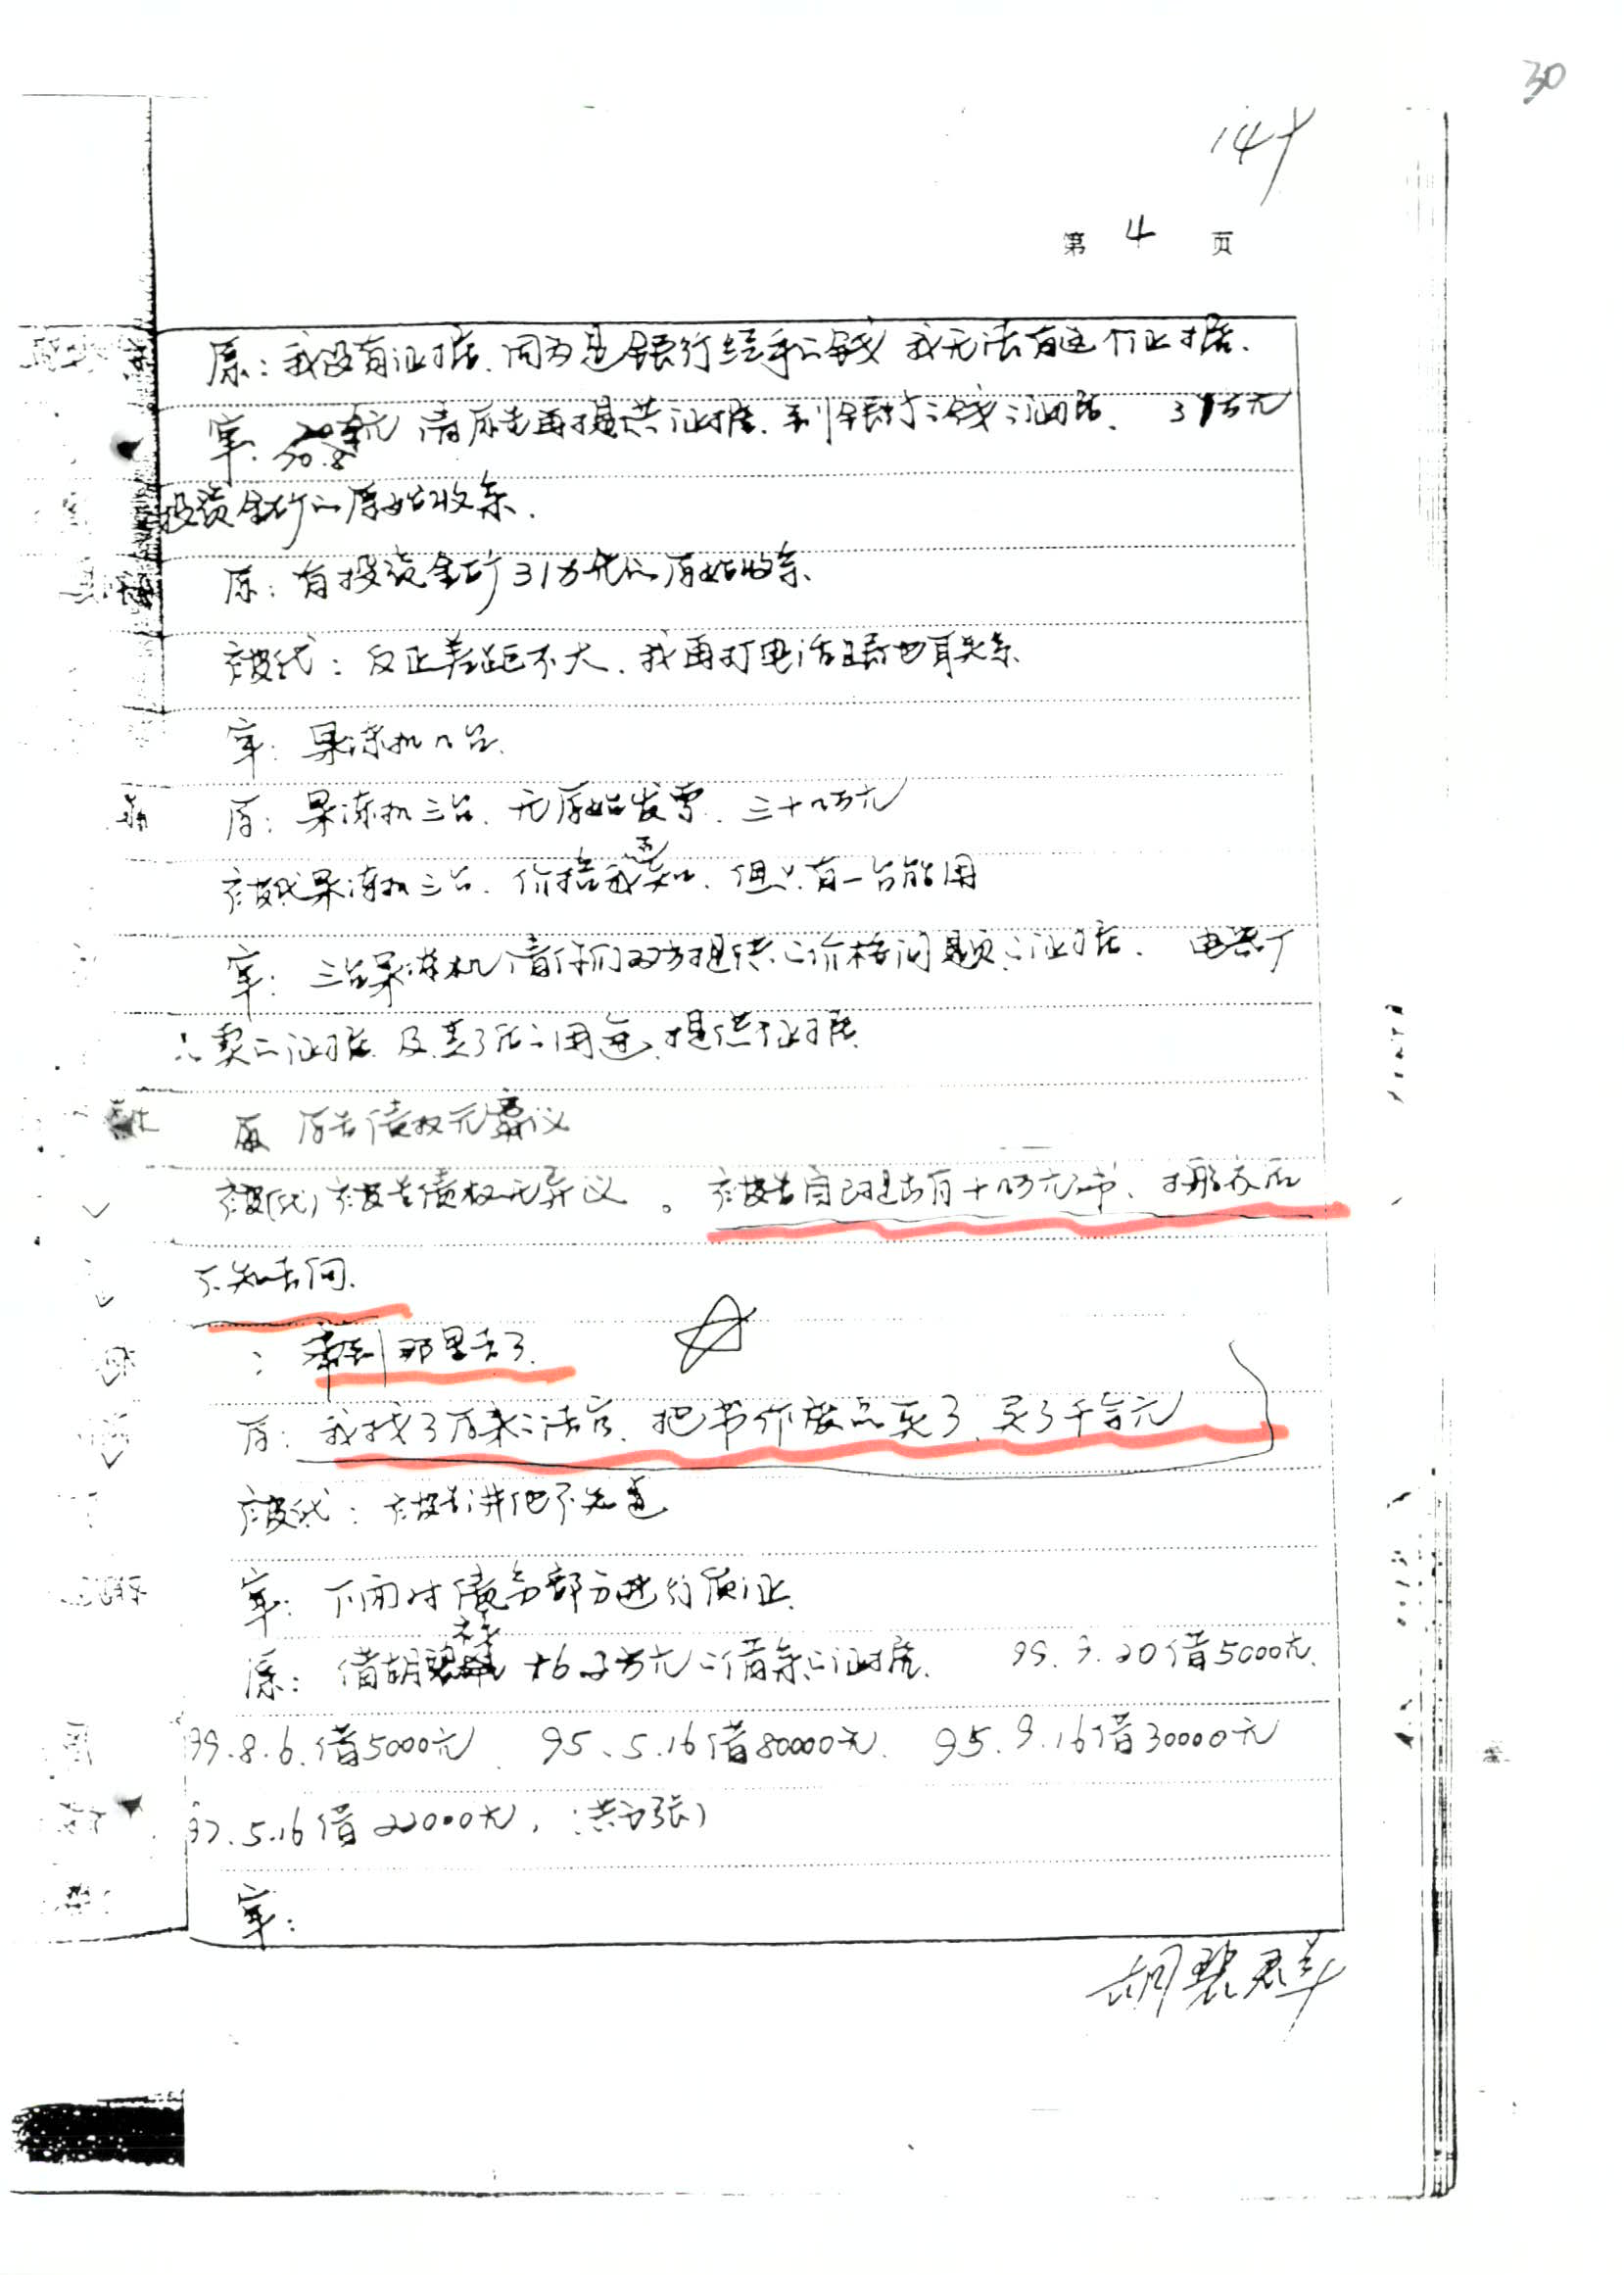 30
147
第 4 页
原：我没有证据、因为是银行经手的钱 我无法有这个证据、
审：请原告再提供证据、利 银行之钱之证据、 31万元
投资金矿的原始收条、
原：有投资金矿31万元的原始收条、
被代：反正差距不大、我再打电话 也联系、
审：果冻机几台、
原：果冻机三台、无原始发票、三十几万元
被代果冻机三台、价格我不知、但只有一台能用
审：三台果冻机请你们双方提供的价格问题之证据、 电器厂
卖的证据 及卖了后的用途、提供证据、
原 原告债权无异议
被(代)被告债权无异议。 被告自己提出有十几万元书、
不知去向、
：到那里去了、
原：我找了原来之法官、把书作废品卖了、买了千言元
被代：被告讲他不知道
审：下面对债务部分进行质证、
原：借胡 16.2万元的借条的证据、 99.9.20借5000元、
99.8.6.借5000元、 95.5.16借80000元、 95.9.16借30000元
97.5.16借22000元，（共五张）
审：
胡碧群